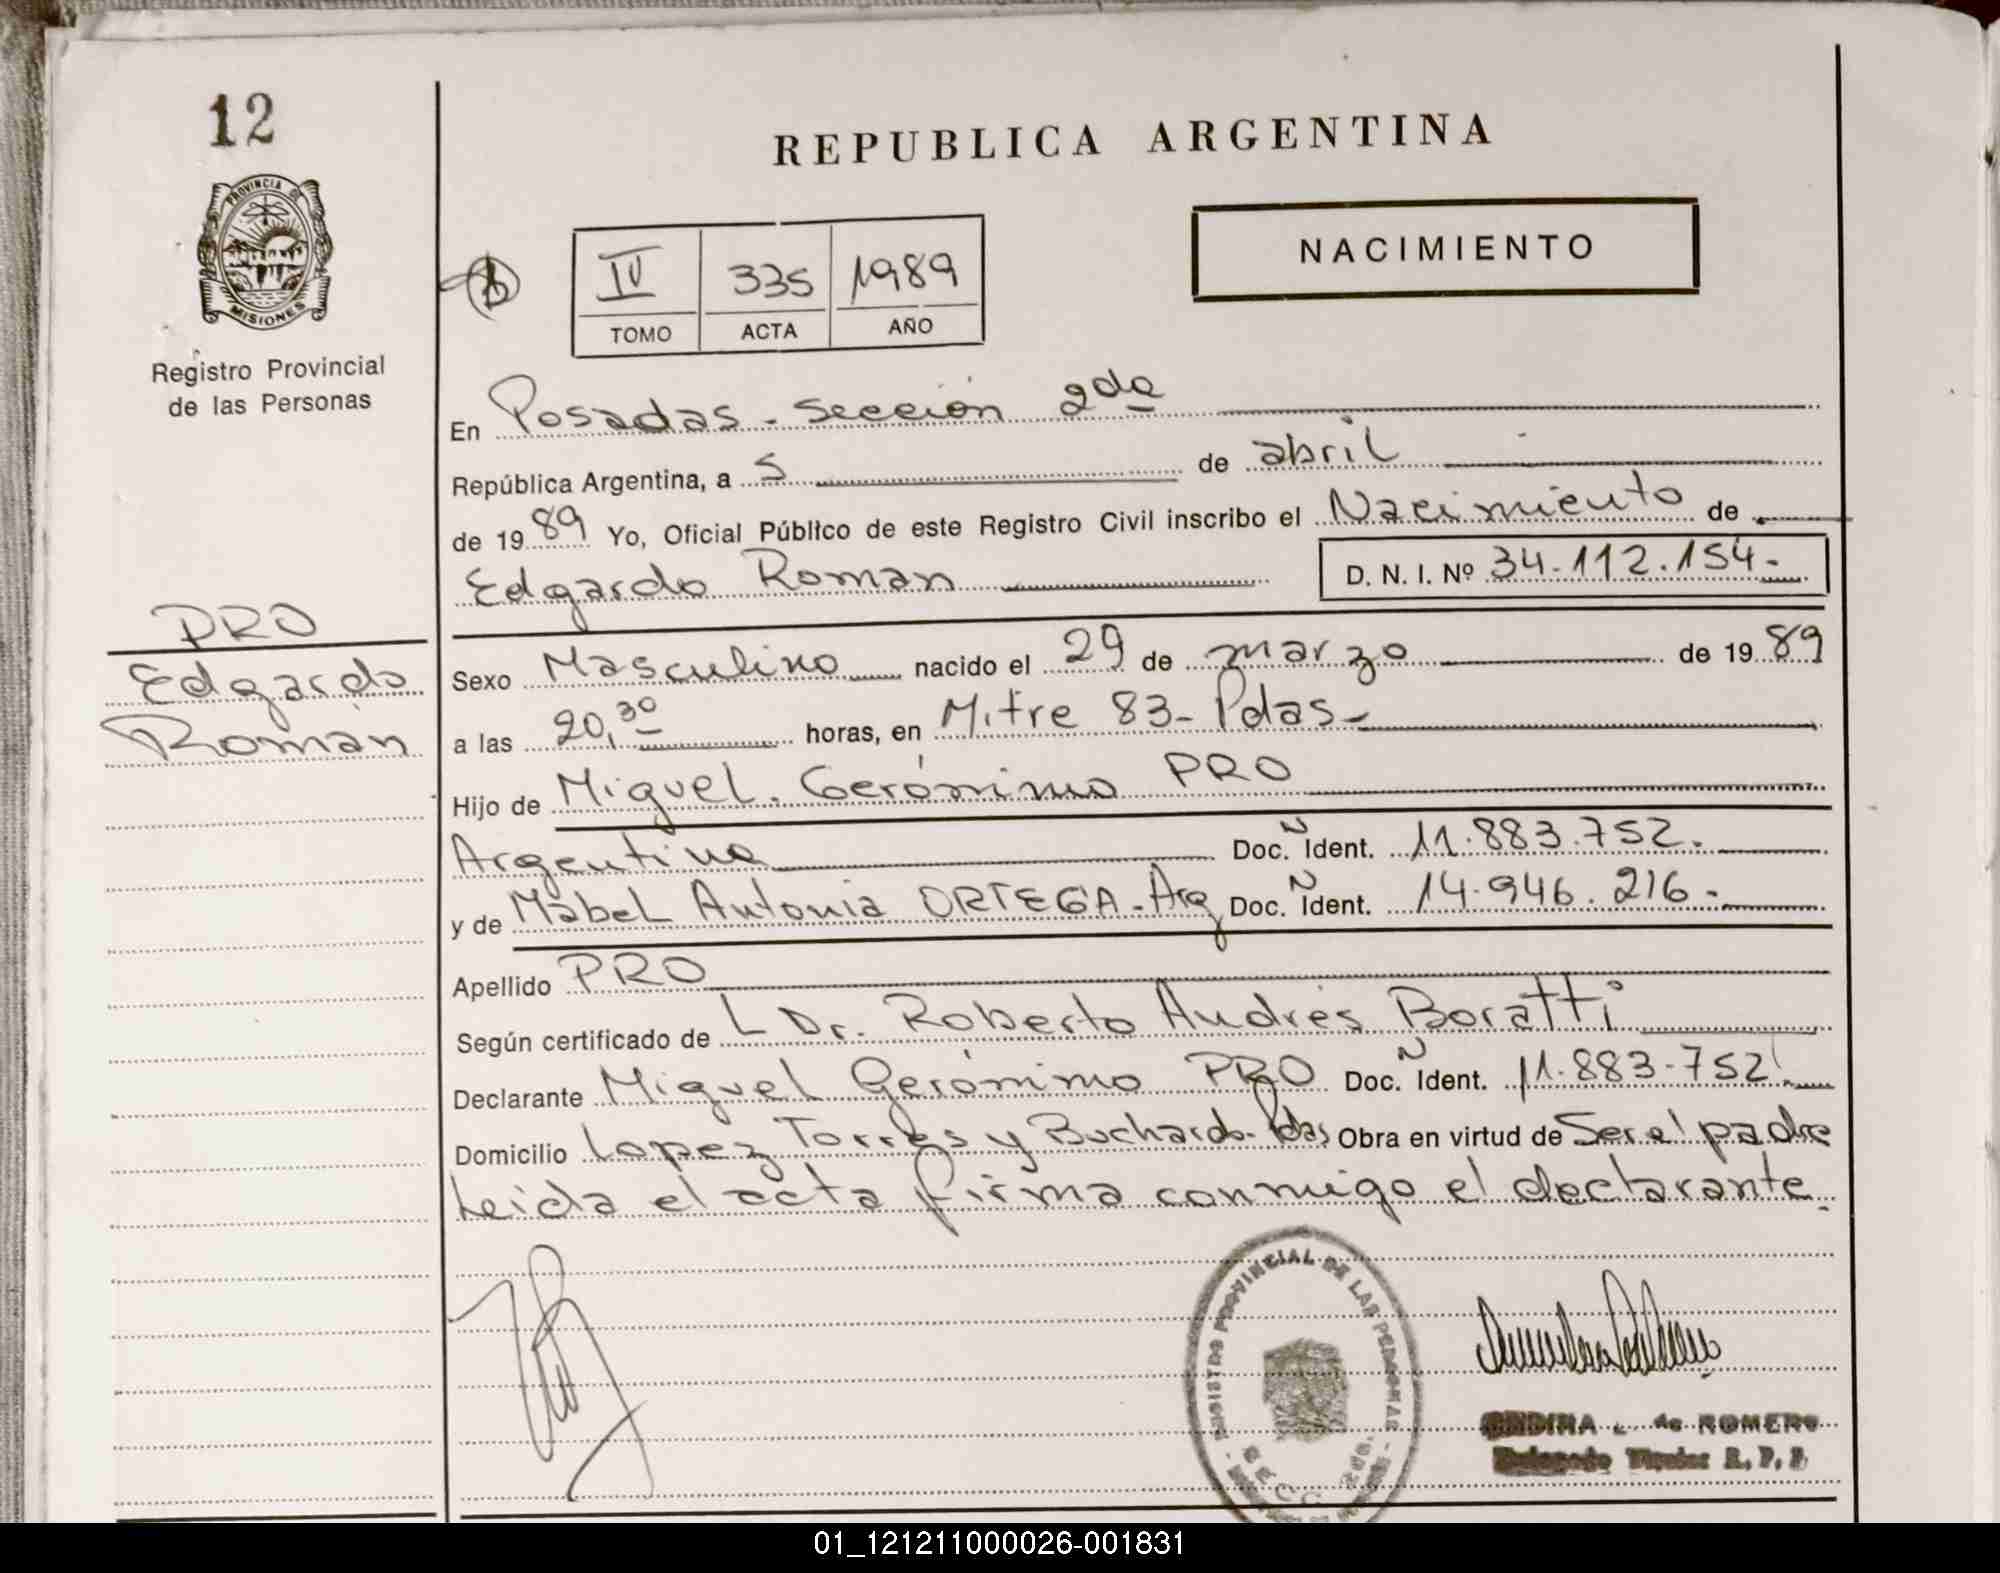 12
PROVINCIA DE
MISIONES
Registro Provincial
de las Personas
PRO
Edgardo
Román
REPUBLICA ARGENTINA
NACIMIENTO
IV 335 1989
TOMO ACTA AÑO
En Posadas - Sección 2da
República Argentina, a 5 de abril
de 1989 Yo, Oficial Público de este Registro Civil inscribo el Nacimiento de
Edgardo Roman D. N. I. Nº 34.112.154.-
Sexo Masculino nacido el 29 de marzo de 1989
a las 20,30 horas, en Mitre 83- Pdas-
Hijo de Miguel Gerónimo PRO
Argentino Doc. N Ident. 11.883.752.
y de Mabel Antonia ORTEGA - Arg Doc. N Ident. 14.946.216.-
Apellido PRO
Según certificado de L Dr. Roberto Andrés Boratti
Declarante Miguel Gerónimo PRO Doc. N Ident. 11.883-752
Domicilio Lopez Torres y Buchardo- Pdas Obra en virtud de Ser el padre
Leida el acta firma conmigo el declarante.
REGISTRO PROVINCIAL DE LAS PERSONAS
SECC. 2DA.
de ROMERO
Titular R. P. P.
01_121211000026-001831